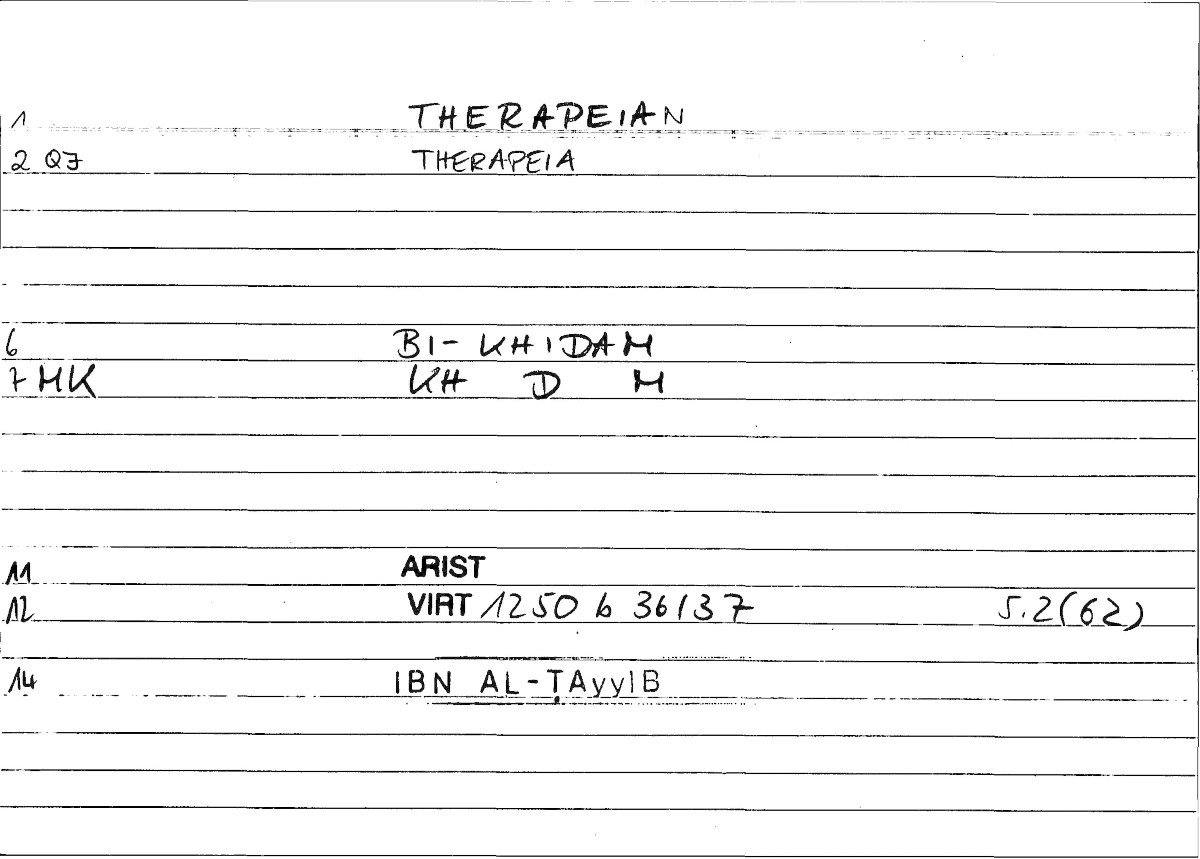 1 THERAPEIAN
2 QJ THERAPEIA
6 BI- KHIDAM
7 MK KH D M
11 ARIST
12 VIRT 1250 b 36/37 5.2(62)
14 IBN AL-ṬAyyIB